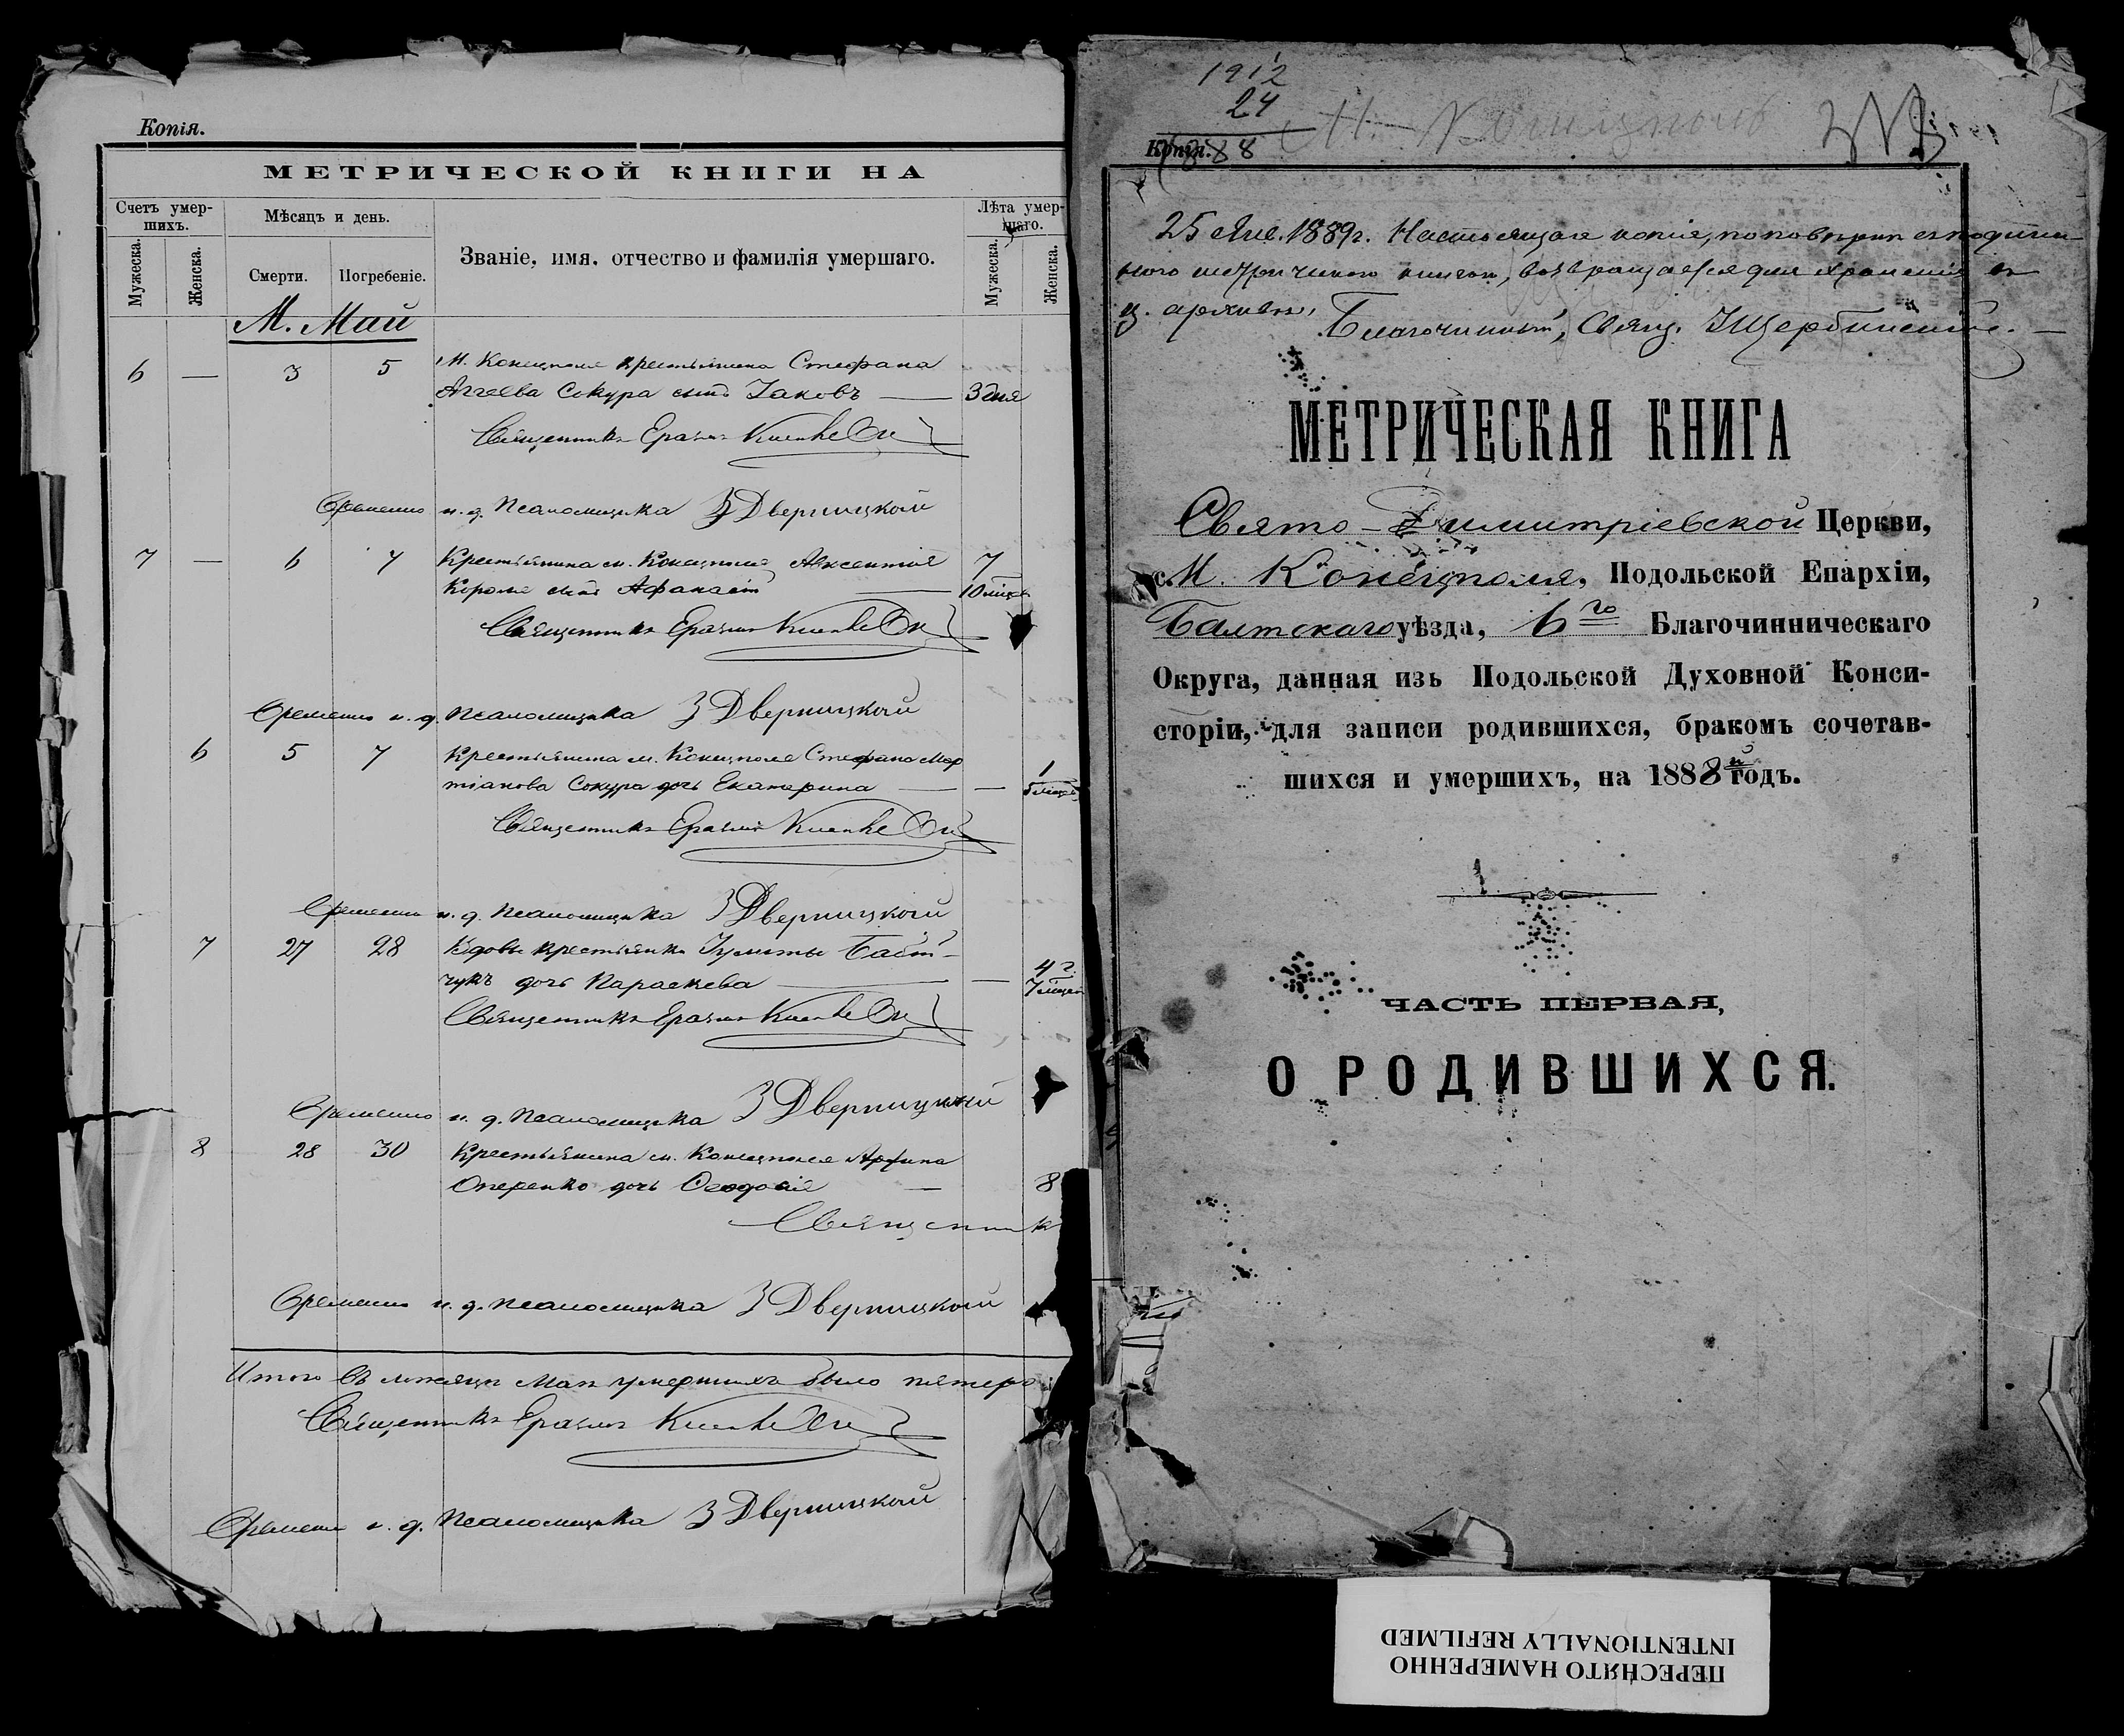 Копія.
МЕТРИЧЕСКОЙ КНИГИ НА
Счетъ умер-
шихъ.
Мужеска.
Женска.
Мѣсяцъ и день.
Смерти.
Погребеніе.
Званіе, имя, отчество и фамилія умершаго.
Лѣта умер-
шаго.
Мужеска.
Женска.
М. Май
6 — 3 5 М. Конецполя крестьянина Стефана
Аггеева Сокура сынъ Іаковъ — 3 дня
Священникъ Еразмъ
Временно и. д. Псаломщика З Дверницкій
7 — 6 7 Крестьянина м. Конецполя Авксентія 7
Короля сынъ Афанасій — 10 мѣсц
Священникъ Еразмъ
Временно и. д. псаломщика З Дверницкій
6 5 7 Крестьянина м. Конецполя Стефана Мар
тіанова Сокура дочь Екатерина — — 1
5 мѣсц
Священникъ Еразмъ
Временно и. д. псаломщика З Дверницкій
7 27 28 Вдовы крестьянки Іулиты
чукъ дочь Параскева — — 4 г.
7 мѣсцей
Священникъ Еразмъ
Временно и. д. псаломщика З Дверницкій
8 28 30 Крестьянина м. Конецполя
Оперенко дочь Ѳеодосія — 8
Священник
Временно и. д. псаломщика З Дверницкій
Итого въ мѣсяцѣ Маѣ умершихъ было пятеро
Священникъ Еразмъ
Временно и. д. псаломщика З Дверницкій
1912
24
1888
М. Конецполь
Копія.
25 Янв. 1889 г. Настоящая копія, по повѣркѣ съ подлин-
ною метрическою книгою, возвращается для храненія въ
ц. архивѣ.
Благочинный, Свящ. Щербинскій.
МЕТРИЧЕСКАЯ КНИГА
Свято-Димитріевской Церкви,
с. М. Конецполя, Подольской Епархіи,
Балтскаго уѣзда, 6го Благочинническаго
Округа, данная изъ Подольской Духовной Конси-
сторіи, для записи родившихся, бракомъ сочетав-
шихся и умершихъ, на 1888й годъ.
ЧАСТЬ ПЕРВАЯ,
О РОДИВШИХСЯ.
ПЕРЕСНЯТО НАМЕРЕННО
INTENTIONALLY REFILMED